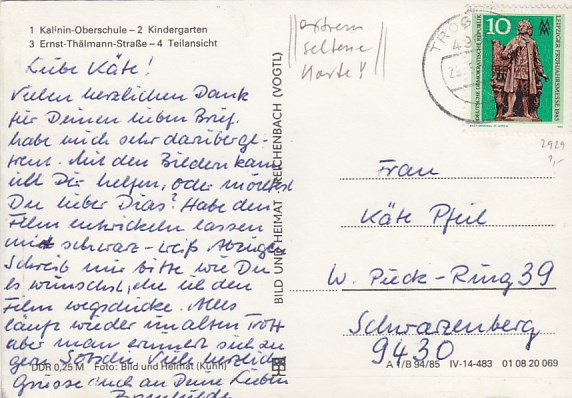 1 Kalinin-Oberschule – 2 Kindergarten
3 Ernst-Thälmann-Straße – 4 Teilansicht
Liebe Käte!
Vielen herzlichen Dank
für Deinen lieben Brief.
habe mich sehr darüber ge-
freut. Mit den Bildern kann
ich Dir helfen, oder möchtest
Du lieber Dias? Habe den
Film entwickeln lassen
mit schwarz-weiß Abzügen
Schreib mir bitte wie Du
es wünschst, ehe ich den
Film wegschicke. Alles
läuft wieder im alten Trott
aber man erinnert sich zu
gern. Viele herzliche
Grüsse auch an Deine Lieben
DDR 0,25 M Foto: Bild und Heimat (Kuhn)
BILD UND HEIMAT REICHENBACH (VOGTL)
extrem
seltene
Karte!
TROS
10
DEUTSCHE DEMOKRATISCHE REPUBLIK
LEIPZIGER FRÜHJAHRSMESSE 1985
2929
1,-
Frau
Käte Pfeil
W. Pieck-Ring 39
Schwarzenberg
9430
A 1/B 94/85 IV-14-483 01 08 20 069